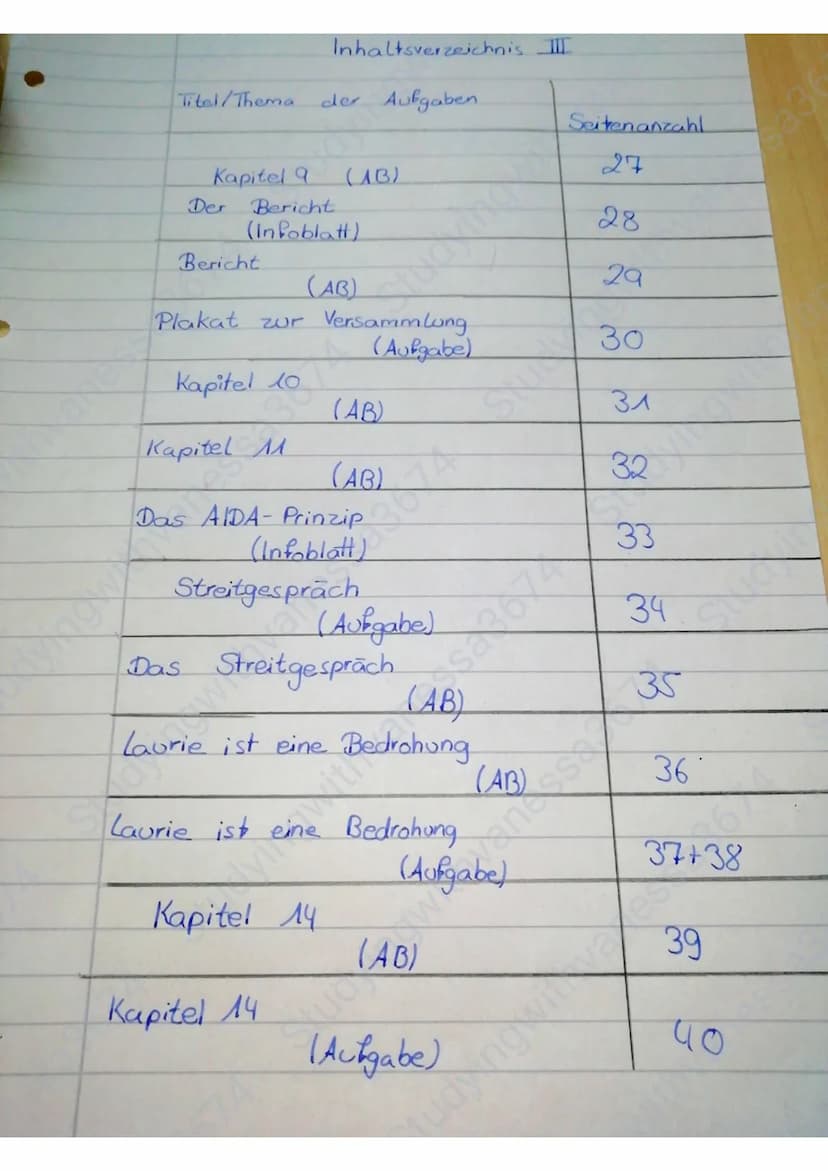 Inhaltsverzeichnis III
Titel/Thema der Aufgaben
Seitenanzahl
Kapitel 9 (AB) 27
Der Bericht
(Infoblatt) 28
Bericht
(AB) 29
Plakat zur Versammlung
(Aufgabe) 30
Kapitel 10
(AB) 31
Kapitel 11
(AB) 32
Das AIDA-Prinzip
(Infoblatt) 33
Streitgespräch
(Aufgabe) 34
Das Streitgespräch
(AB) 35
Laurie ist eine Bedrohung
(AB) 36
Laurie ist eine Bedrohung
(Aufgabe) 37+38
Kapitel 14
(AB) 39
Kapitel 14
(Aufgabe) 40
Studyingwithvanessa3674